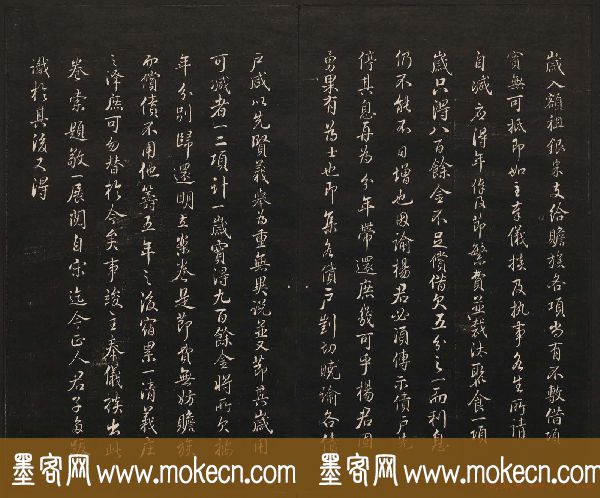 歲入額租銀米支給贍族各項尚有不敷借項
實無可抵即如主奉儀族及執事各生所請
自減應得年俸及節繁費並裁汰聚食一項
歲只得八百餘金不足償借欠五分之一而利息
仍不能不日增也因諭楊君必須傳示債戶先
停其息再為分年帶還庶幾可乎楊君固
勇果有為士也即集各債戶剴切曉諭各債
戶咸以先賢義舉為重無異說並又節其歲用
可減者一二項計一歲實得九百餘金將所欠按
年分別歸還明立案卷是節費無妨贍族
而償債不用他籌五年之後宿累一清義莊
之澤庶可勿替於今矣事竣主奉儀族出此
卷索題敬一展閱自宋迄今正人君子多
識於其後又得
墨客网 www.mokecn.com
墨客网 www.mokecn.com